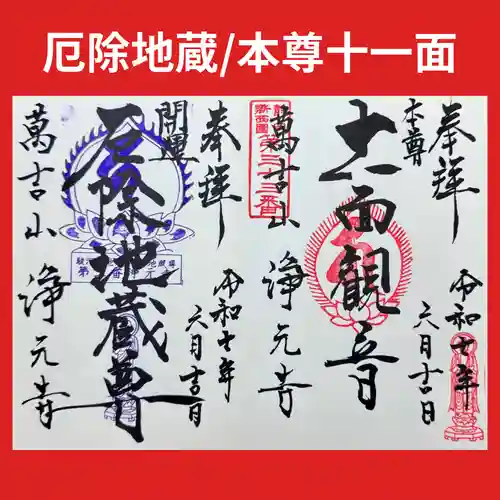 厄除地蔵/本尊十一面
奉拝
本尊
十一面観音
令和七年
六月吉日
萬吉山 浄元寺
新西国
第三十三番
奉拝
開運
厄除地蔵尊
令和七年
六月吉日
萬吉山 浄元寺